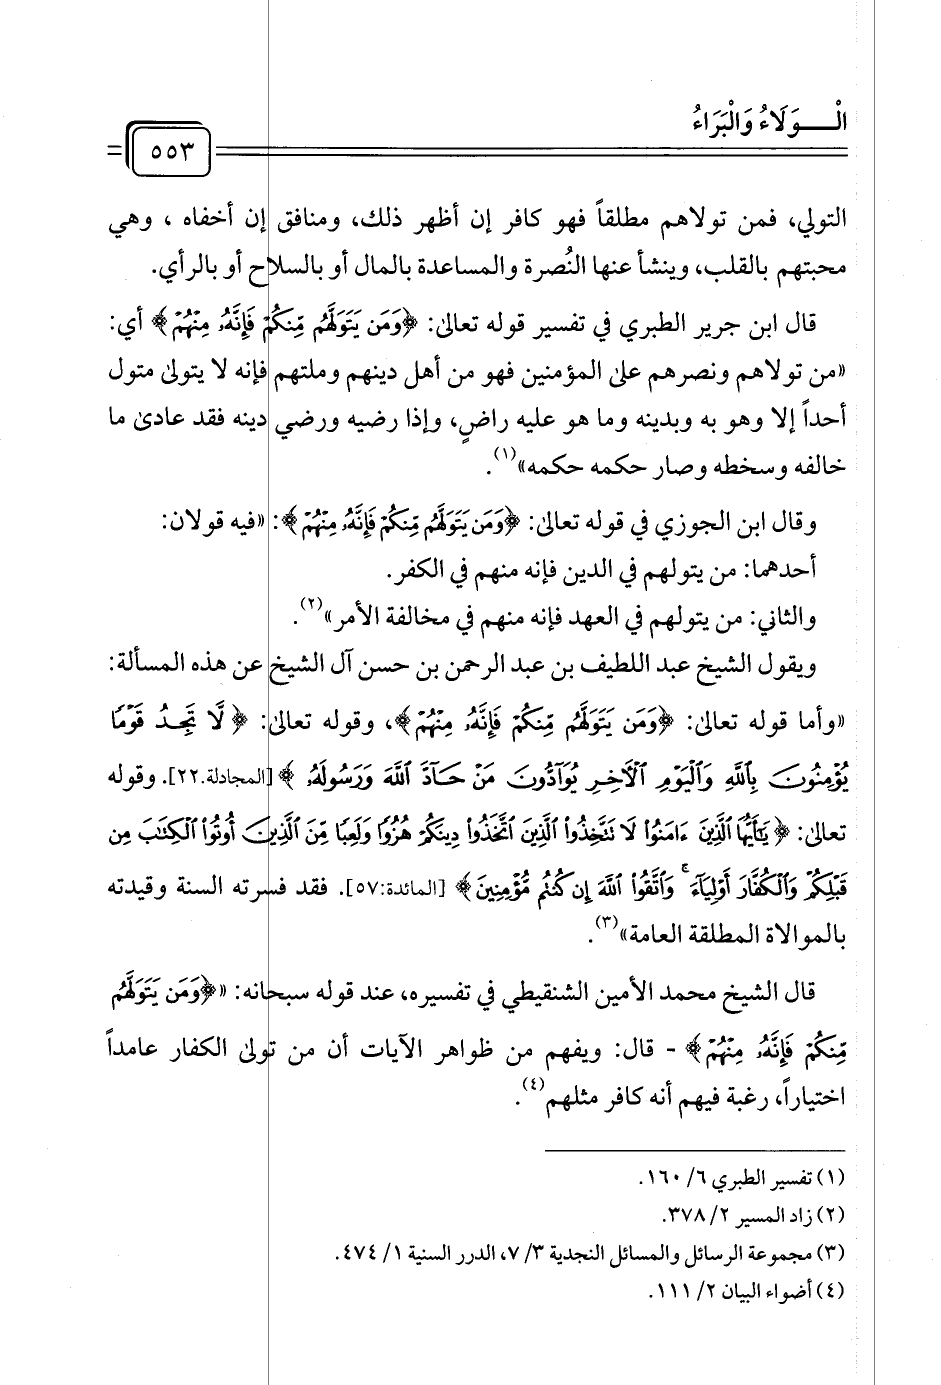 الْـــوَلَاءُ وَالْبَرَاءُ
٥٥٣
التولي، فمن تولاهم مطلقاً فهو كافر إن أظهر ذلك، ومنافق إن أخفاه ، وهي
محبتهم بالقلب، وينشأ عنها النُصرة والمساعدة بالمال أو بالسلاح أو بالرأي.
قال ابن جرير الطبري في تفسير قوله تعالىٰ: ﴿وَمَن يَتَوَلَّهُم مِّنكُمْ فَإِنَّهُۥ مِنْهُمْ﴾ أي:
«من تولاهم ونصرهم علىٰ المؤمنين فهو من أهل دينهم وملتهم فإنه لا يتولىٰ متول
أحداً إلا وهو به وبدينه وما هو عليه راضٍ، وإذا رضيه ورضي دينه فقد عادىٰ ما
خالفه وسخطه وصار حكمه حكمه»(١).
وقال ابن الجوزي في قوله تعالىٰ: ﴿وَمَن يَتَوَلَّهُم مِّنكُمْ فَإِنَّهُۥ مِنْهُمْ﴾: «فيه قولان:
أحدهما: من يتولهم في الدين فإنه منهم في الكفر.
والثاني: من يتولهم في العهد فإنه منهم في مخالفة الأمر»(٢).
ويقول الشيخ عبد اللطيف بن عبد الرحمن بن حسن آل الشيخ عن هذه المسألة:
«وأما قوله تعالىٰ: ﴿وَمَن يَتَوَلَّهُم مِّنكُمْ فَإِنَّهُۥ مِنْهُمْ﴾، وقوله تعالىٰ: ﴿لَّا تَجِدُ قَوْمًا
يُؤْمِنُونَ بِٱللَّهِ وَٱلْيَوْمِ ٱلْأَخِرِ يُوَآدُّونَ مَنْ حَآدَّ ٱللَّهَ وَرَسُولَهُۥ﴾ [المجادلة.٢٢]. وقوله
تعالىٰ: ﴿يَٰٓأَيُّهَا ٱلَّذِينَ ءَامَنُوا۟ لَا تَتَّخِذُوا۟ ٱلَّذِينَ ٱتَّخَذُوا۟ دِينَكُمْ هُزُوًا وَلَعِبًا مِّنَ ٱلَّذِينَ أُوتُوا۟ ٱلْكِتَٰبَ مِن
قَبْلِكُمْ وَٱلْكُفَّارَ أَوْلِيَآءَ ۚ وَٱتَّقُوا۟ ٱللَّهَ إِن كُنتُم مُّؤْمِنِينَ﴾ [المائدة:٥٧]. فقد فسرته السنة وقيدته
بالموالاة المطلقة العامة»(٣).
قال الشيخ محمد الأمين الشنقيطي في تفسيره، عند قوله سبحانه: «﴿وَمَن يَتَوَلَّهُم
مِّنكُمْ فَإِنَّهُۥ مِنْهُمْ﴾ - قال: ويفهم من ظواهر الآيات أن من تولىٰ الكفار عامداً
اختياراً، رغبة فيهم أنه كافر مثلهم(٤).
(١) تفسير الطبري ٦/ ١٦٠.
(٢) زاد المسير ٢/ ٣٧٨.
(٣) مجموعة الرسائل والمسائل النجدية ٣/ ٧، الدرر السنية ١/ ٤٧٤.
(٤) أضواء البيان ٢/ ١١١.